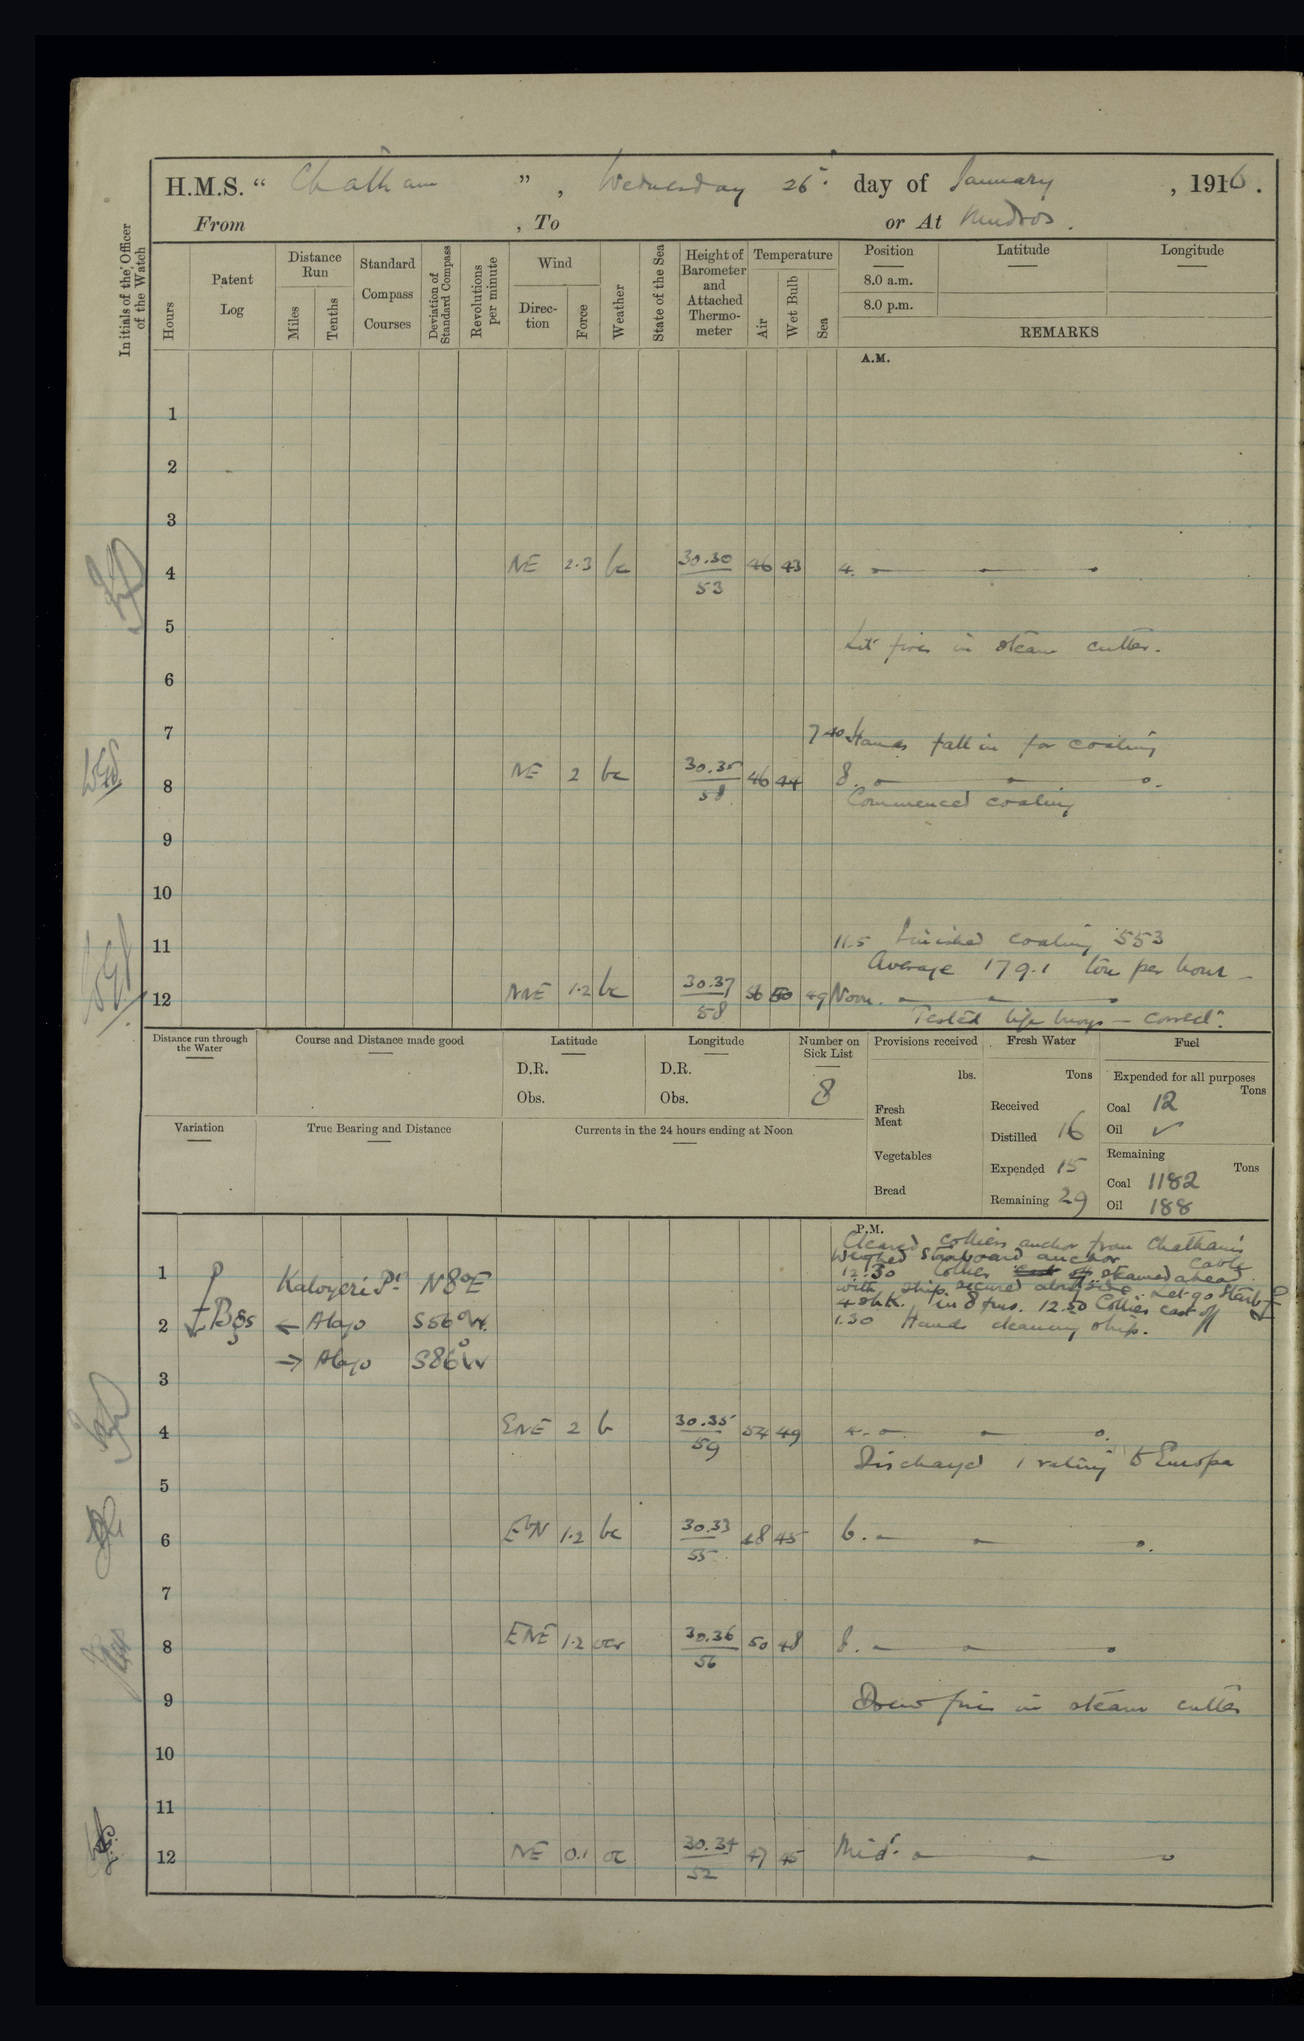 H.M.S. “ Chatham ” , Wednesday 26th day of January , 1916 .
From , To or At Mudros .
Initials of the Officer of the Watch
Hours
Patent Log
Distance Run
Miles
Tenths
Standard Compass Courses
Deviation of Standard Compass
Revolutions per minute
Wind
Direction
Force
Weather
State of the Sea
Height of Barometer and Attached Thermometer
Temperature
Air
Wet Bulb
Sea
Position
Latitude
Longitude
8.0 a.m.
8.0 p.m.
REMARKS
A.M.
1
2
3
4 NE 2.3 bc 30.30 46 43 4.
53
5
Lit fires in steam cutter.
6
7
7 40 Hands fall in for coaling
8 NE 2 bc 30.35 46 44 8.
58
Commenced coaling
9
10
11
11.5 Finished coaling 553
Average 179.1 tons per hour
12 NNE 1.2 bc 30.37 56 50 49 Noon.
58
Tested life buoys – correct.
Distance run through the Water
Course and Distance made good
Latitude
D.R.
Obs.
Longitude
D.R.
Obs.
Number on Sick List
8
Provisions received
lbs.
Fresh Meat
Vegetables
Bread
Fresh Water
Tons
Received
Distilled 16
Expended 15
Remaining 29
Fuel
Expended for all purposes
Tons
Coal 12
Oil ✓
Remaining
Tons
Coal 1182
Oil 188
Variation
True Bearing and Distance
Currents in the 24 hours ending at Noon
P.M.
Cleared colliers anchor from Chatham's
Weighed Starboard anchor cable
12.30 Collier steamed ahead
with ship secured alongside. Let go Starbd
1 Kaloyeri Pt N8°E
4 shk. in 8 fms. 12.50 Collier cast off
1.30 Hands cleaning ship.
2 Bgs ← Alago S56°W.
→ Alago S86°W
3
4 ENE 2 b 30.35 54 49 4.
59
Discharged 1 rating to Europa
5
6 EbN 1.2 bc 30.33 48 45 6.
55
7
8 ENE 1.2 ocr 30.36 50 48 8.
56
9
Drew fires in steam cutter
10
11
12 NE 0.1 oc 30.34 47 45 Midt.
52